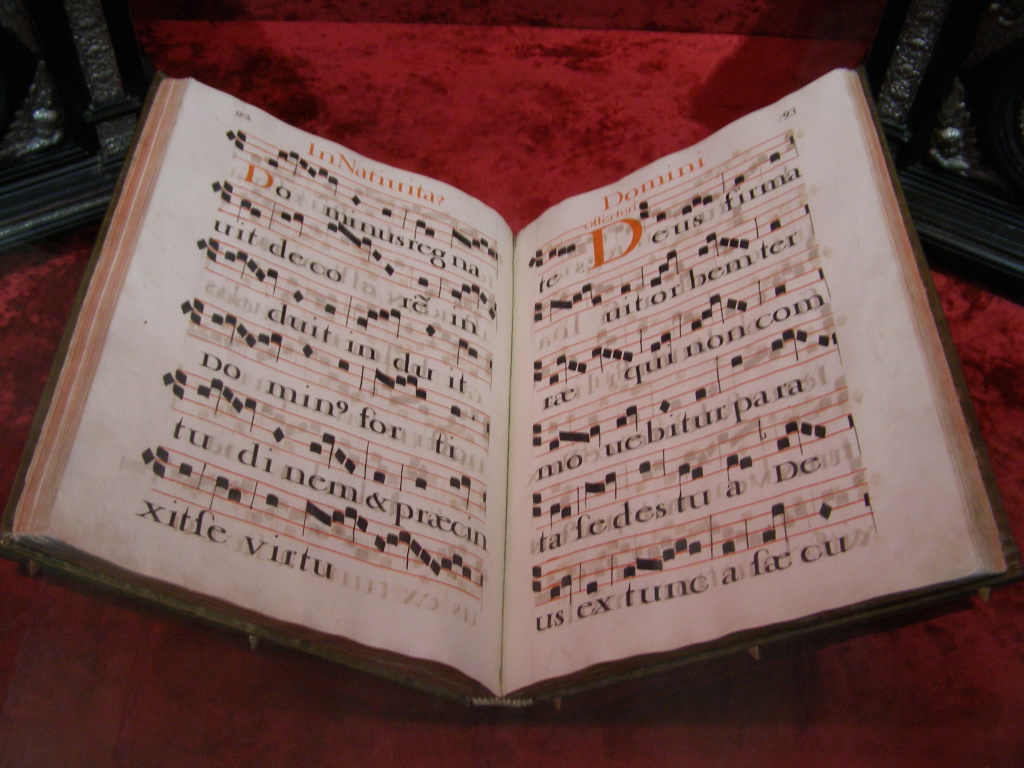 92
In Natiuita?
Do minus regna
uit decorē in
duit induit
Do min9 for ti
tu di nem & præcin
xit se virtu
93
Domini
offertori
te Deus firma
uit orbem ter
ræ qui non com
mo uebitur para
ta sedes tu a De
us ex tunc a sæ cu